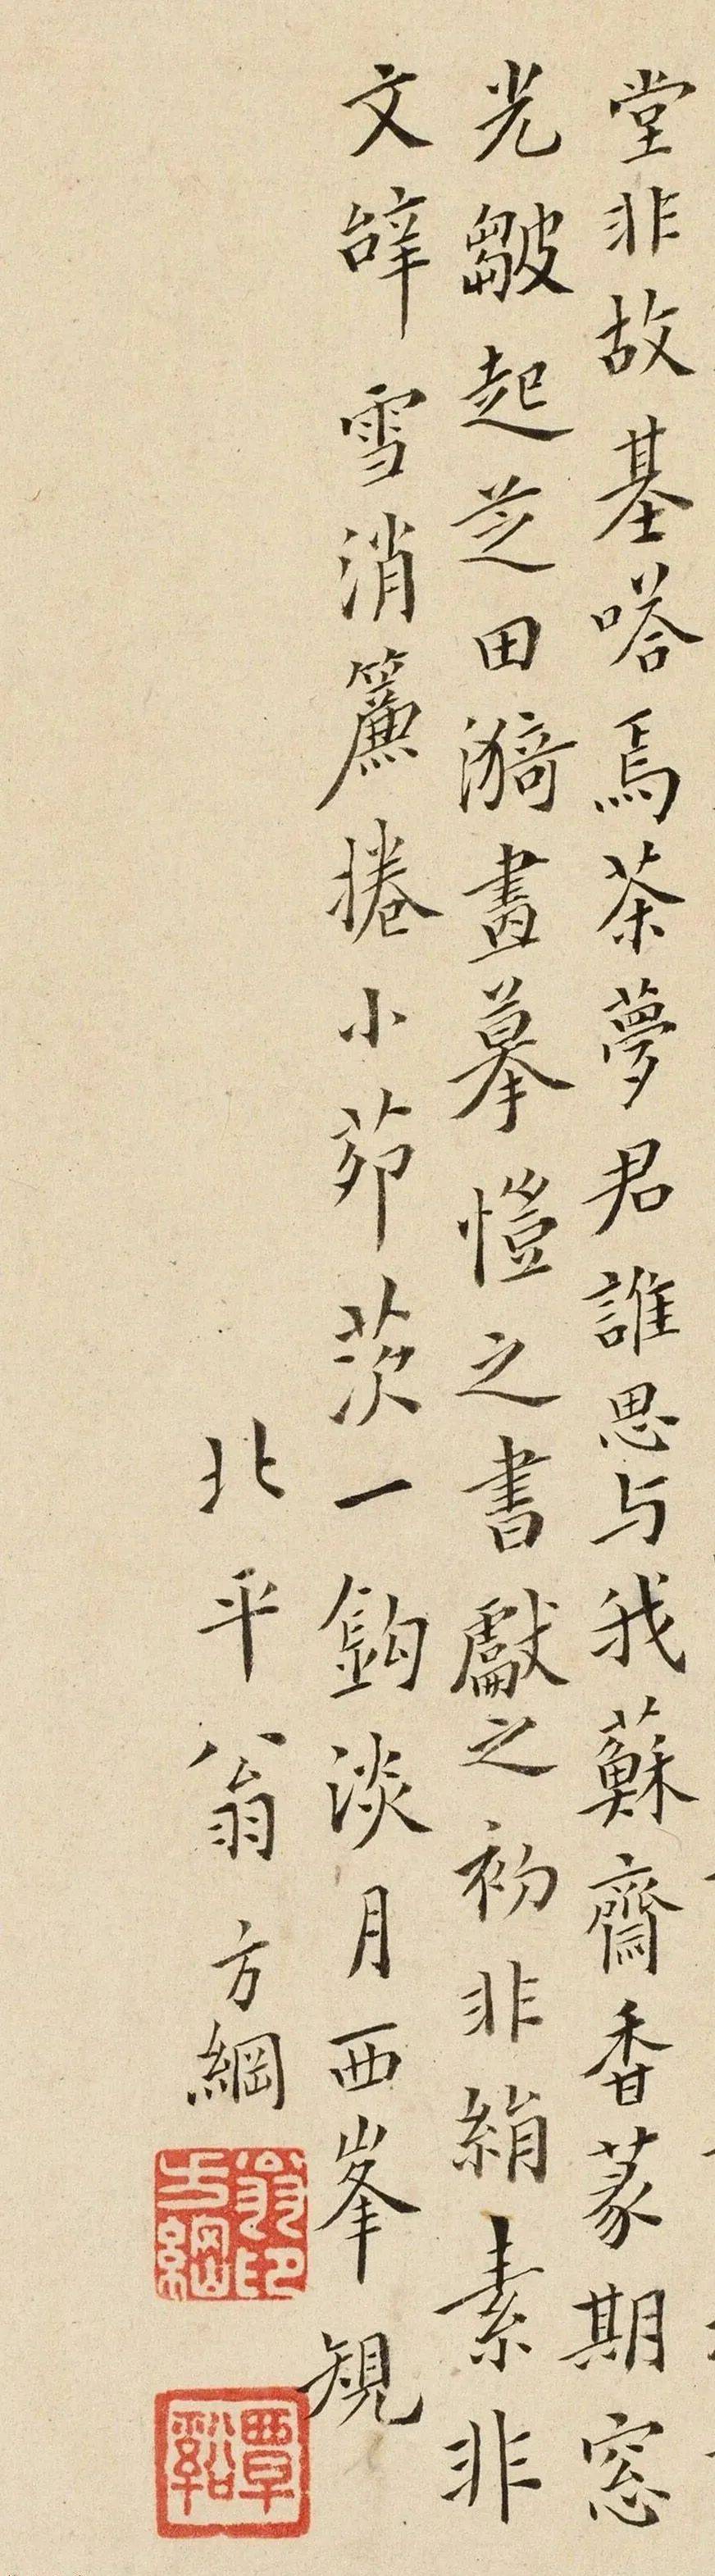 堂非故基嗒焉茶夢君誰思与我蘇齋香篆期窓
光皺起芝田漪畫摹愷之書獻之初非絹素非
文辝雪消簾捲小茆茨一鈎淡月西峯規
北平翁方綱
翁方綱印
覃谿